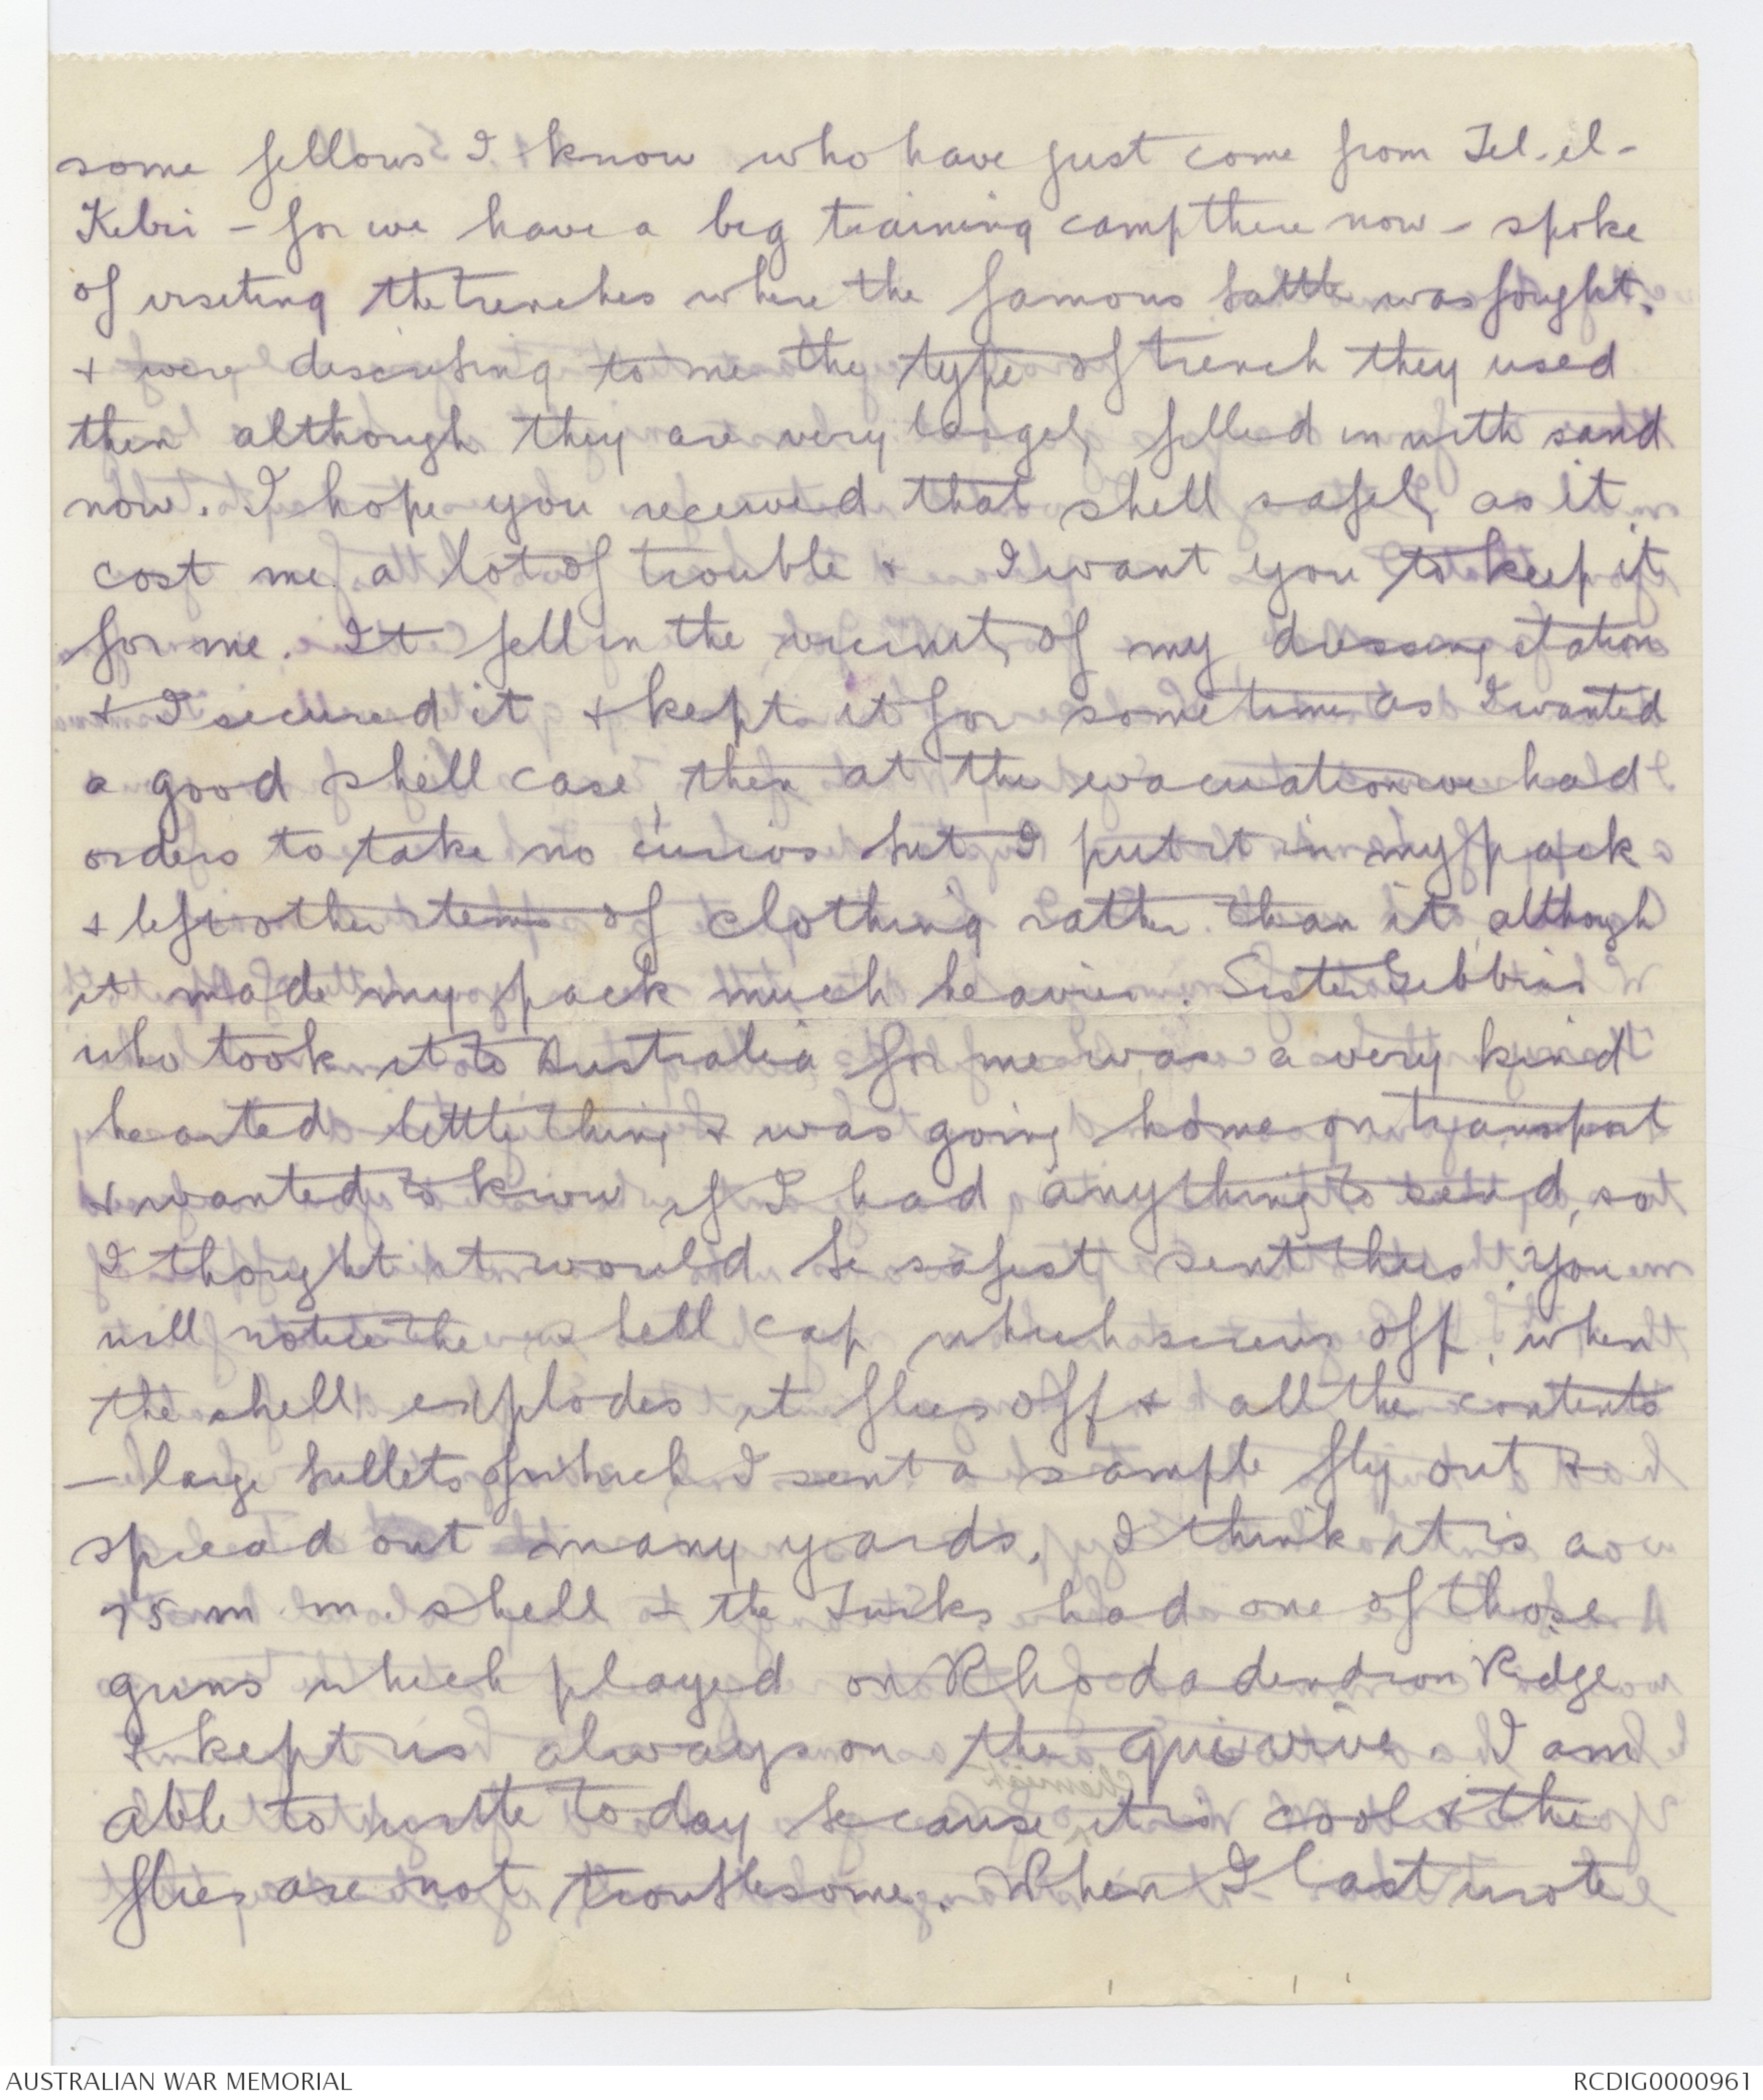 some fellows I know who have just come from Tel-el-
Kebri - for we have a big training camp there now - spoke
of visiting the trenches where the famous battle was fought.
+ were describing to me the type of trench they used
then although they are very largely filled in with sand
now. I hope you received that shell safely as it
cost me a lot of trouble + I want you to keep it
for me. It fell in the vicinity of my dressing station
+ I secured it + kept it for sometime as I wanted
a good shell case, then at the evacuation we had
orders to take no curios but I put it in my pack
+ left other items of clothing rather than it although
it made my pack much heavier. Sister Gibbins
who took it to Australia for me was a very kind
hearted little thing + was going home on transport
+ wanted to know if I had anything to send, so
I thought it would be safest sent thus. You
will notice the shell cap which screws off, when
the shell explodes it flies off + all the contents
- large bullets of which I sent a sample fly out +
spread out many yards. I think it is a
75 m.m. shell - the Turks had one of those
guns which played on Rhodadendron Ridge
+ kept us always on the qui vive. I am
able to write today because it is cool + the
flies are not troublesome. When I last wrote
AUSTRALIAN WAR MEMORIAL
RCDIG0000961